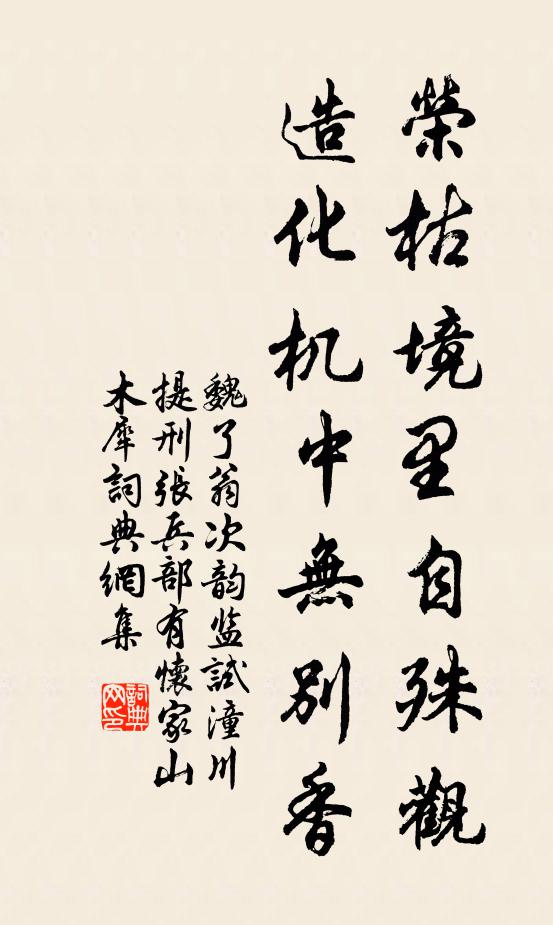 榮枯境里自殊觀
造化机中無別香
魏了翁次韵监試潼川
提刑張兵部有懷家山
木犀詞典網集
詞典网印